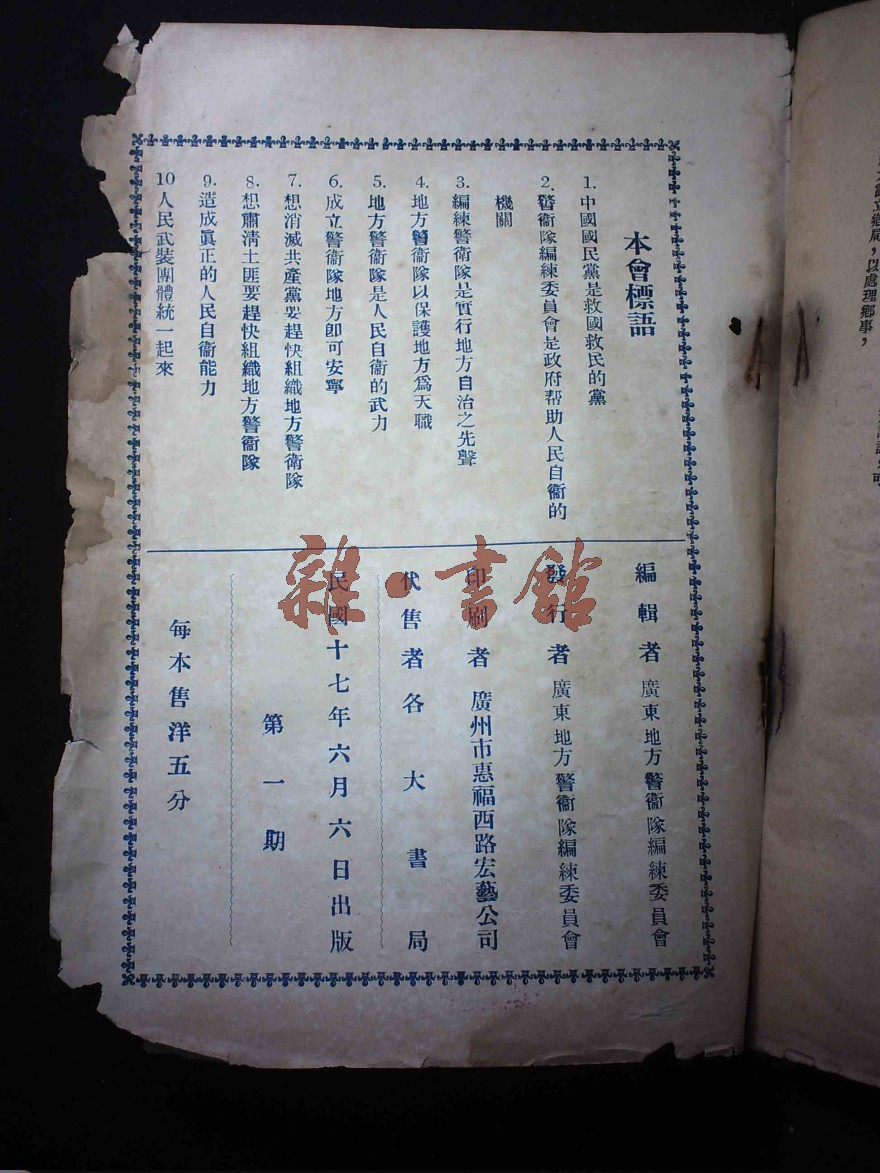 本會標語
1. 中國國民黨是救國救民的黨
2. 警衞隊編練委員會是政府帮助人民自衞的
機關
3. 編練警衞隊是實行地方自治之先聲
4. 地方警衞隊以保護地方爲天職
5. 地方警衞隊是人民自衞的武力
6. 成立警衞隊地方卽可安寧
7. 想消滅共產黨要趕快組織地方警衞隊
8. 想肅淸土匪要趕快組織地方警衞隊
9. 造成眞正的人民自衞能力
10 人民武裝團體統一起來
編輯者 廣東地方警衞隊編練委員會
發行者 廣東地方警衞隊編練委員會
印刷者 廣州市惠福西路宏藝公司
代售者各大書局
民國十七年六月六日出版
第一期
每本售洋五分
雜·書館
以處理鄉事，